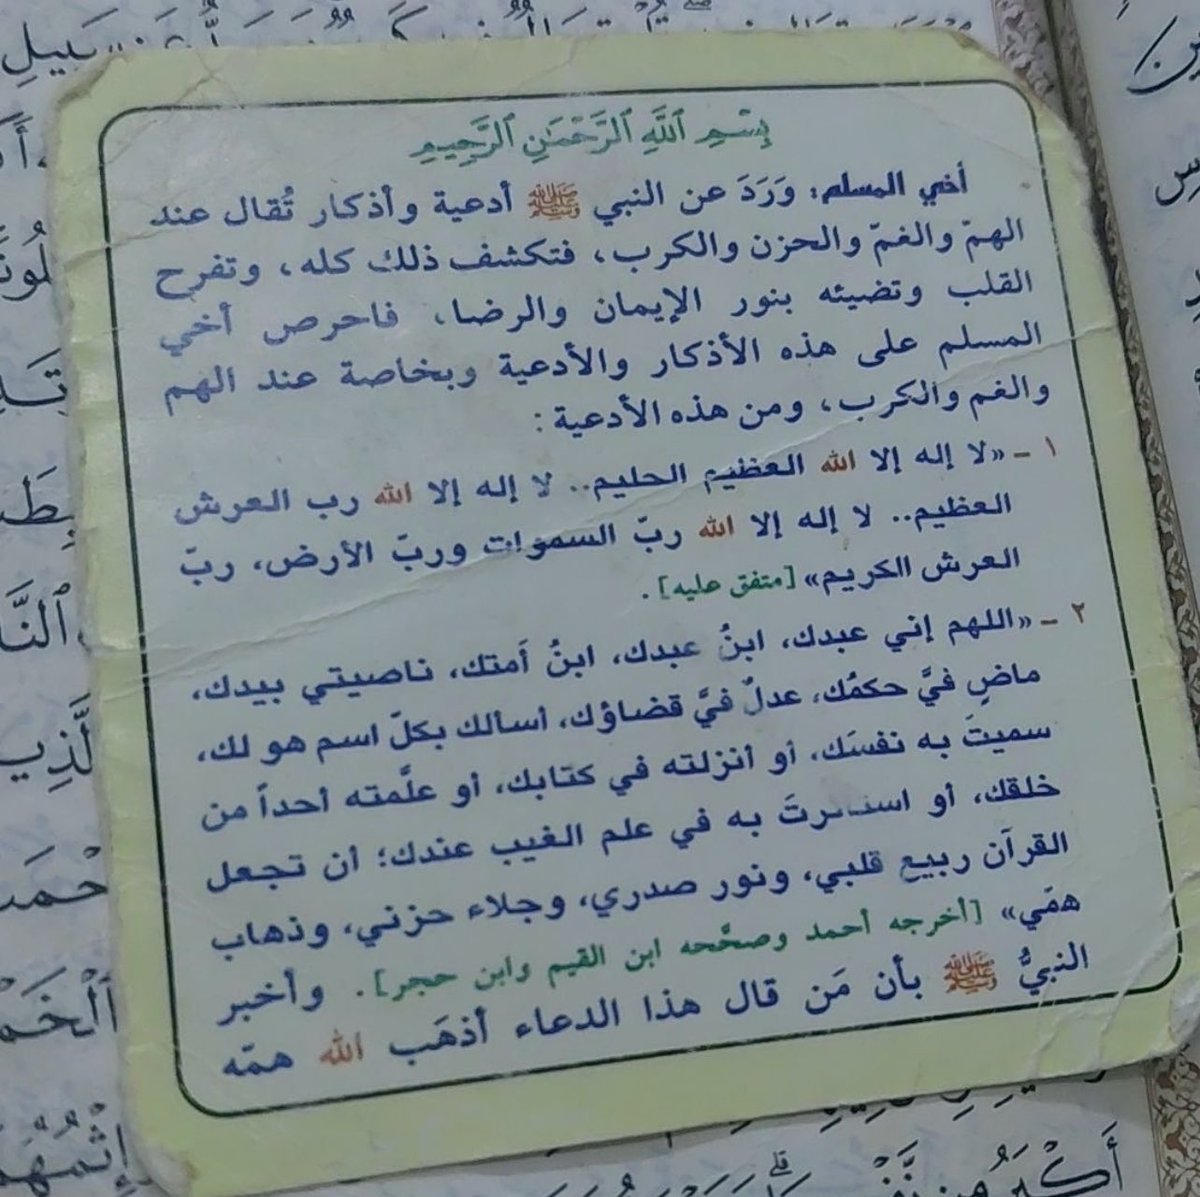 بِسْمِ ٱللَّهِ ٱلرَّحْمَٰنِ ٱلرَّحِيمِ
أخي المسلم: وَرَدَ عن النبي ﷺ أدعية وأذكار تُقال عند
الهمّ والغمّ والحزن والكرب، فتكشف ذلك كله، وتفرح
القلب وتضيئه بنور الإيمان والرضا، فاحرص أخي
المسلم على هذه الأذكار والأدعية وبخاصة عند الهم
والغم والكرب، ومن هذه الأدعية:
١ - «لا إله إلا الله العظيم الحليم.. لا إله إلا الله رب العرش
العظيم.. لا إله إلا الله ربّ السموات وربّ الأرض، ربّ
العرش الكريم» [متفق عليه].
٢ - «اللهم إني عبدك، ابنُ عبدك، ابنُ أمتك، ناصيتي بيدك،
ماضٍ فيَّ حكمُك، عدلٌ فيَّ قضاؤك، أسألك بكلّ اسم هو لك،
سميتَ به نفسَك، أو أنزلته في كتابك، أو علَّمته أحداً من
خلقك، أو استأثرتَ به في علم الغيب عندك؛ أن تجعل
القرآن ربيع قلبي، ونور صدري، وجلاء حزني، وذهاب
همّي» [أخرجه أحمد وصحَّحه ابن القيم وابن حجر]. وأخبر
النبيُّ ﷺ بأن مَن قال هذا الدعاء أذهَب الله همّه